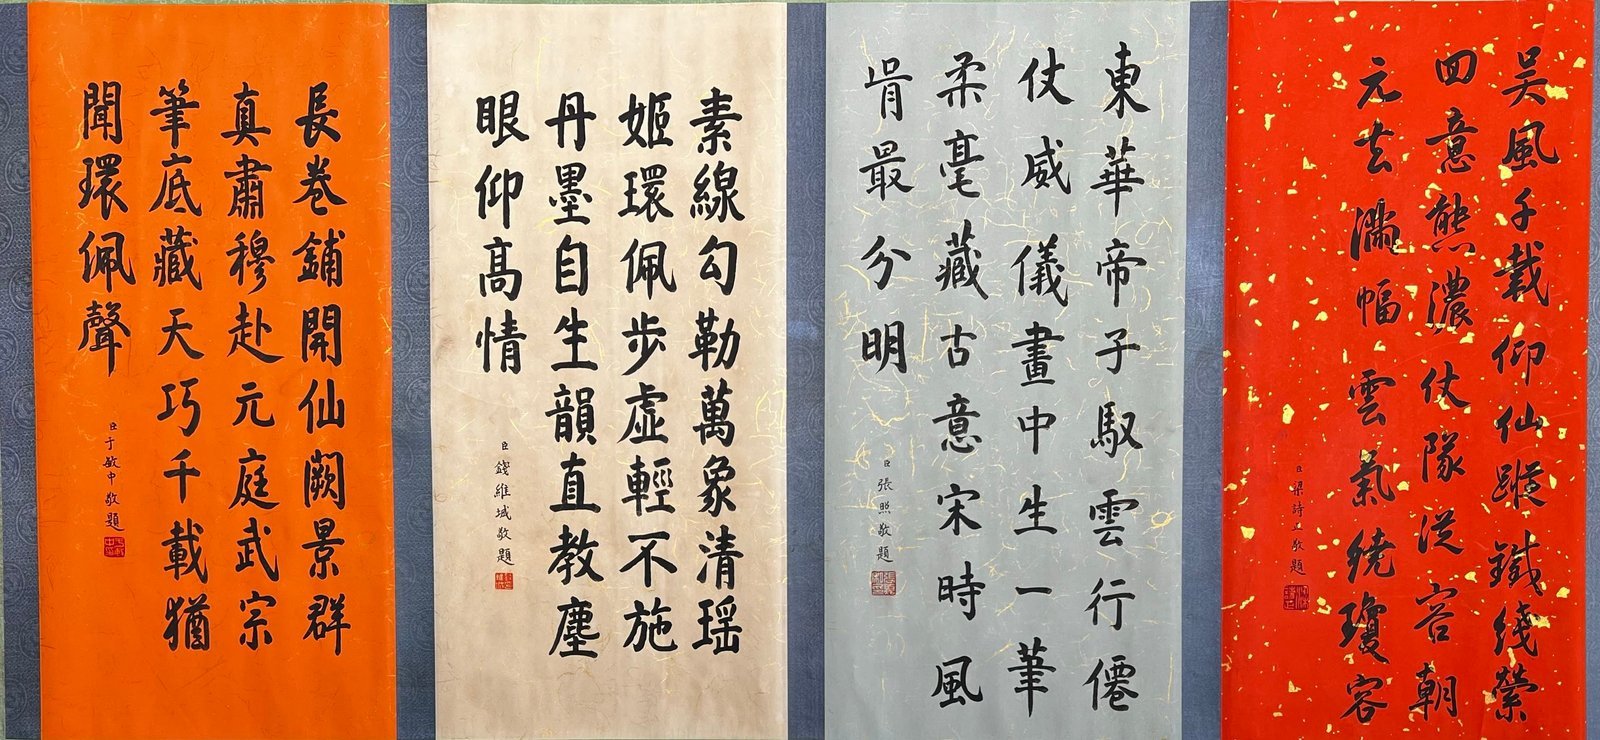 吴風千載仰仙蹤鐵綫縈
囬意態濃仗隊従容朝
元去滿幅雲氣繞瓊容
臣梁詩正敬題
東華帝子馭雲行僊
仗威儀畫中生一筆
柔毫藏古意宋時風
骨最分明
臣張照敬題
素線勾勒萬象清瑶
姬環佩步虚輕不施
丹墨自生韻直教塵
眼仰高情
臣錢維城敬題
長卷鋪開仙闕景群
真肅穆赴元庭武宗
筆底藏天巧千載猶
聞環佩聲
臣于敏中敬題